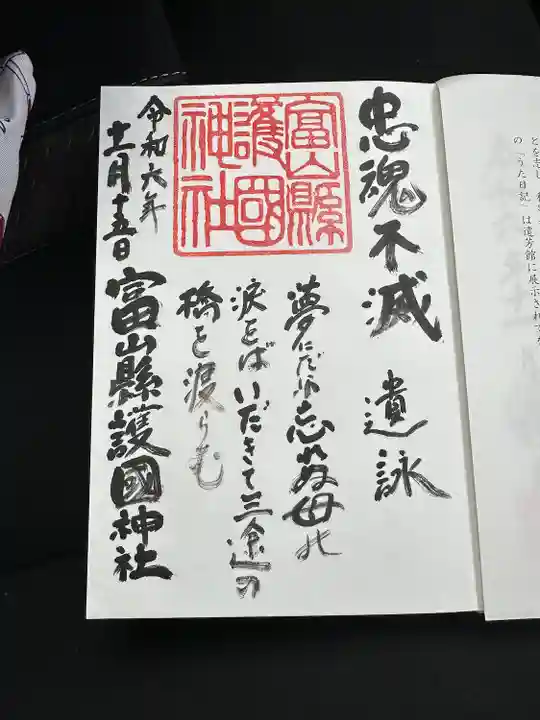 とを志し
の「うた日記」は遺芳館に展示されて
忠魂不滅
遺詠
夢にだに忘れぬ母の
涙をばいだきて三途の
橋を渡らむ
富山縣
護國
神社
令和六年
十一月十五日
富山縣護國神社